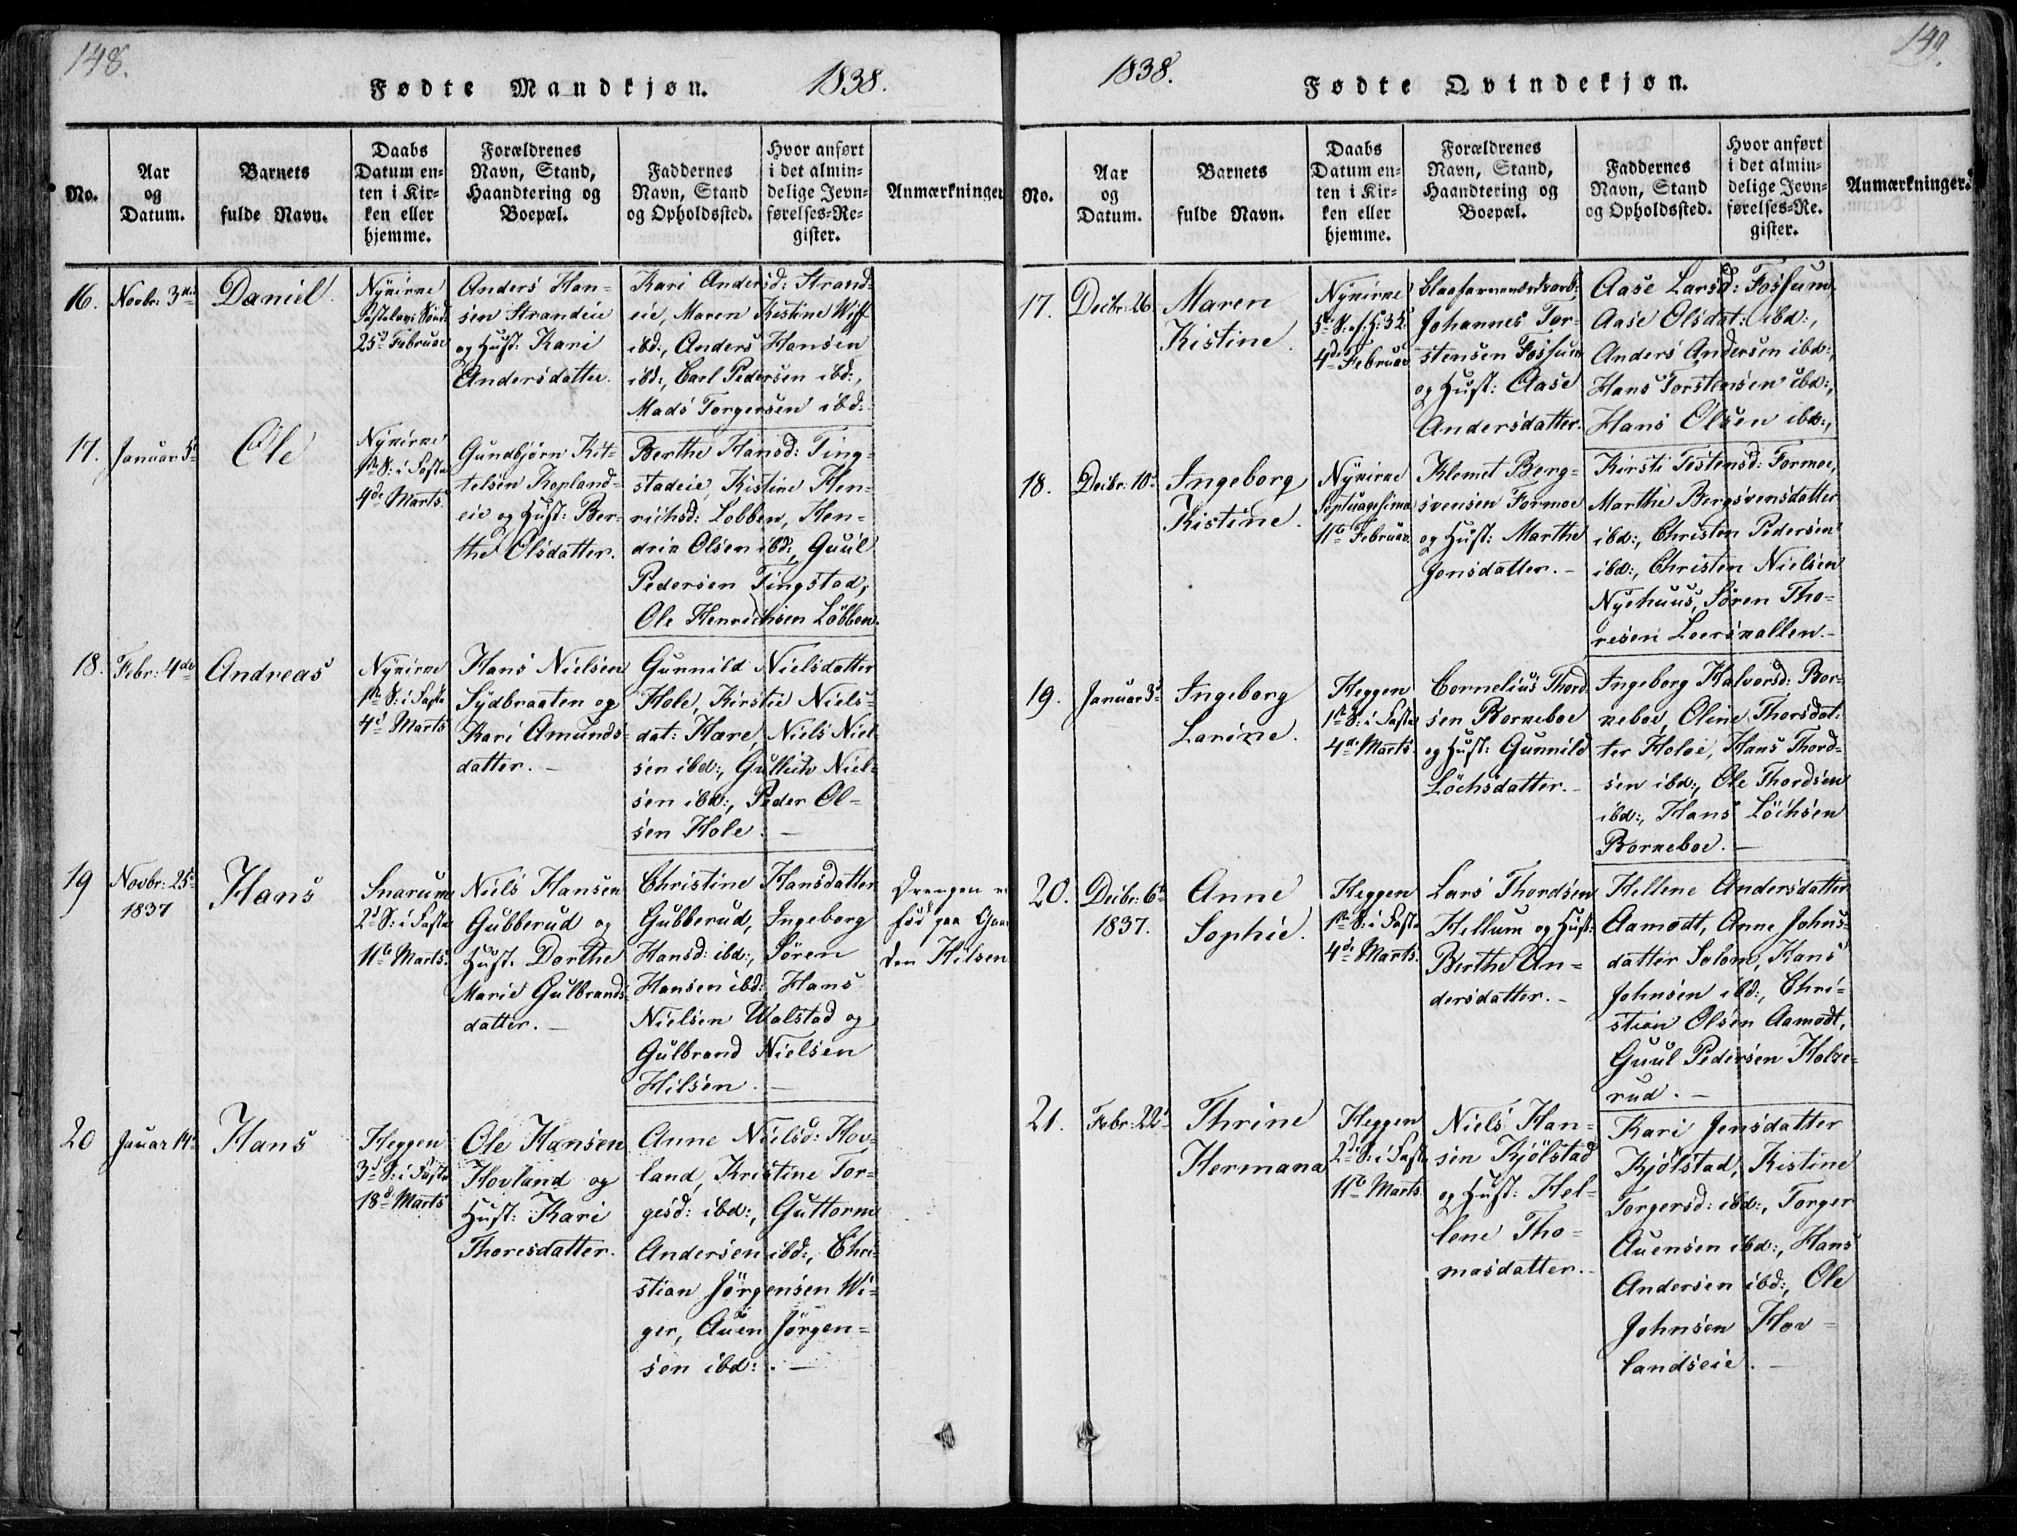 148.
Fødte Mandkjøn.
1838.
No.
Aar
og
Datum.
Barnets
fulde Navn.
Daabs
Datum en-
ten i Kir-
ken eller
hjemme.
Forældrenes
Navn, Stand,
Haandtering og
Boepæl.
Faddernes
Navn, Stand
og Opholdssted.
Hvor anført
i det almin-
delige Jevn-
førelses-Re-
gister.
Anmærkninger
16.
Novbr: 3die
Daniel.
Nykirne
Fastelavns Sønd:
25d Februar
Anders Han-
sen Strandeie
og Hust: Kari
Andersdatter.
Kari Andersd: Strand-
eie, Maren Kistine Wiff
ibd:, Anders Hansen
ibd:, Carl Pedersen ibd:,
Mads Torgersen ibd:
17.
Januar 5t
Ole
Nykirne
1st S: i Fasta
4de Marts.
Gundbjørn Kit-
telsen Kopland-
eie og Hust: Ber-
the Olsdatter.
Berthe Hansd: Ting-
stadeie, Kistine Hen-
richsd: Lobben, Hen-
drik Olsen ibd:, Guul
Pedersen Tingstad,
Ole Henrichsen Løbben.
18.
Febr: 4de
Andreas
Nykirne
1st S: i Fasta
4d Marts
Hans Nielsen
Sydbraaten og
Kari Amunds-
datter. —
Gunnild Nielsdatter
Hole, Kirstie Niels-
dat: Hære, Niels Niel-
sen ibd:, Gullich Niel-
sen ibd:, Peder Ol-
sen Hole. —
19
Novbr: 25d
1837
Hans
Snarum
2d S: i Fasta
11te Marts.
Niels Hansen
Gubberud og
Hust. Dorthe
Marie Gulbrands-
datter. —
Christine Hansdatter
Gubberud, Ingeborg
Hansd: ibd:, Søren
Hansen ibd: Hans
Nielsen Walstad og
Gulbrand Nielsen
Hilsen. —
Drengen
fød paa
den Hilsen
20
Jauar 14d
Hans
Heggen
3d S: i Fasta
18d Marts
Ole Hansen
Hovland og
Hust: Kari
Thoresdatter.
Anne Nielsd: Hov-
land, Kristine Tor-
gesd: ibd:, Guttorm
Andersen ibd:, Chri-
stian Jørgensen Wi-
ger, Auen Jørgen-
sen ibd:. —
149.
1838.
Fødte Qvindekjøn.
No.
Aar
og
Datum.
Barnets
fulde Navn.
Daabs
Datum en-
ten i Kir-
ken eller
hjemme.
Forældrenes
Navn, Stand,
Haandtering og
Boepæl.
Faddernes
Navn, Stand
og Opholdssted.
Hvor anført
i det almin-
delige Jevn-
førelses-Re.
gister.
Anmærkninger.
17.
Decbr: 26
Maren
Kistine.
Nykirne
5t S. e. H: 3 K:
4de Februar
Johannes Tor-
stensen Fossum
og Hust: Aase
Andersdatter.
Aase Larsd: Fossum.
Aase Olsdat: ibd:,
Anders Andersen ibd:,
Hans Torstensen ibd:,
Hans Olsen ibd:,
18.
Decbr: 10d
Ingeborg
Kistine.
Nykirne
Septuagesima
11te Februar.
Klemet Berg-
svensen Formoe
og Hust: Marthe
Jonsdatter. —
Kirsti Tostensd: Formoe,
Marthe Bergsvensdatter
ibd:, Christen Pedersen
ibd:, Christen Nielsen
Nyehuus, Søren Tho-
resen Leersvallen. —
19.
Januar 3d
Ingeborg
Larine.
Heggen
1st S: i Fasta
4de Marts
Cornelius Thord-
sen Borneboe
og Hust: Gunnild
Löchsdatter. —
Ingeborg Halvorsd: Bor-
neboe, Oline Thorsdat-
ter Holoe, Hans Thord-
sen ibd:, Ole Thordsen
ibd:, Hans Löchsen
Borneboe. —
20.
Decbr: 6t
1837.
Anne
Sophie.
Heggen
1st S: i Fasta
4de Marts.
Lars Thordsen
Hellum og Hust:
Berthe An-
dersdatter. —
Hellene Andersdatter
Aamodt, Anne Johns-
datter Solom, Hans
Johnsen ibd:, Chri-
stian Olsen Aamodt,
Guul Pedersen Holze-
rud. —
21.
Febr: 22d
Thrine
Hermana
Heggen
2d S: i Fasta
11te Marts.
Niels Han-
sen Kjölstad
og Hust: Hel-
lene Tho-
masdatter. —
Kari Jensdatter
Kjölstad, Kistine
Torgersd: ibd:, Torger
Auensen ibd:, Hans
Andersen ibd:, Ole
Johnsen Hov-
landseie. —